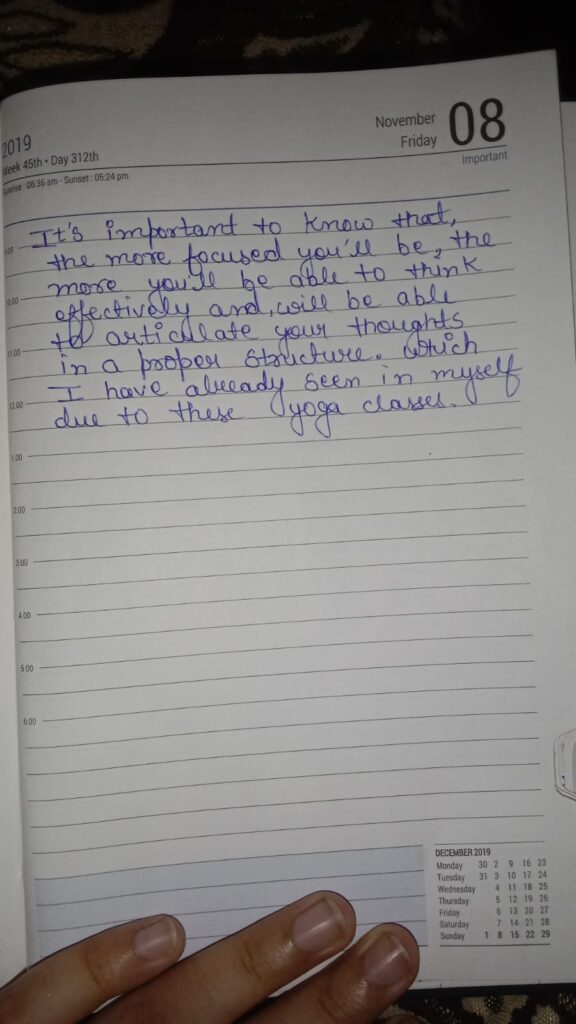 2019
Week 45th • Day 312th
Sunrise : 06:36 am - Sunset : 05:24 pm
November
Friday
08
Important
It's important to know that,
the more focused you'll be, the
more you'll be able to think
effectively and, will be able
to articulate your thoughts
in a proper structure. which
I have already seen in myself
due to these yoga classes.
9.00
10.00
11.00
12.00
1.00
2.00
3.00
4.00
5.00
6.00
DECEMBER 2019
Monday 30 2 9 16 23
Tuesday 31 3 10 17 24
Wednesday 4 11 18 25
Thursday 5 12 19 26
Friday 6 13 20 27
Saturday 7 14 21 28
Sunday 1 8 15 22 29